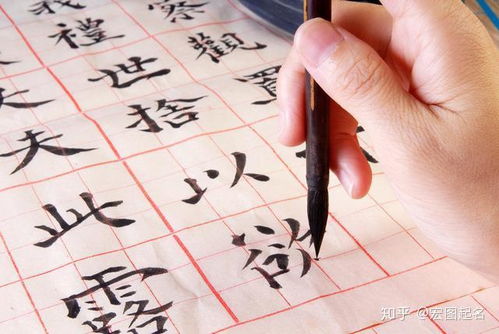 察觀
我禮世捨以說
夫此露
知乎 @宏图起名